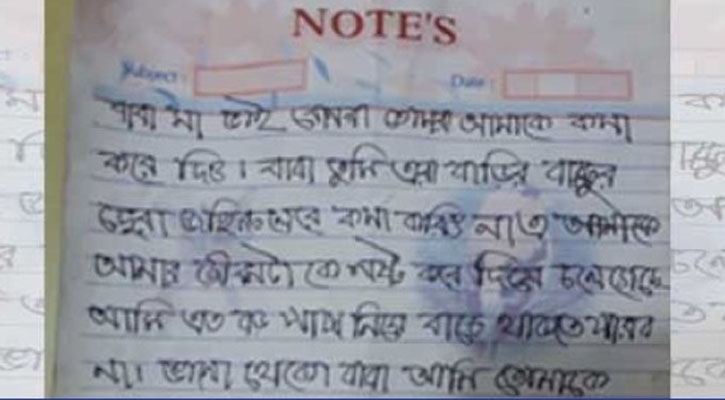 NOTE'S
Subject : Date :
বাবা মা ভাই তোমরা আমাকে ক্ষমা
করে দিও। বাবা তুমি বাড়ির
ক্ষমা করিও না এ আমাকে
আমার জীবনটা কে নষ্ট করে দিয়ে চলে গেছে
আমি এত বড় পাপ নিয়ে বাচে থাকতে পারব
না। ভালো থেকো বাবা আমি তোমাকে